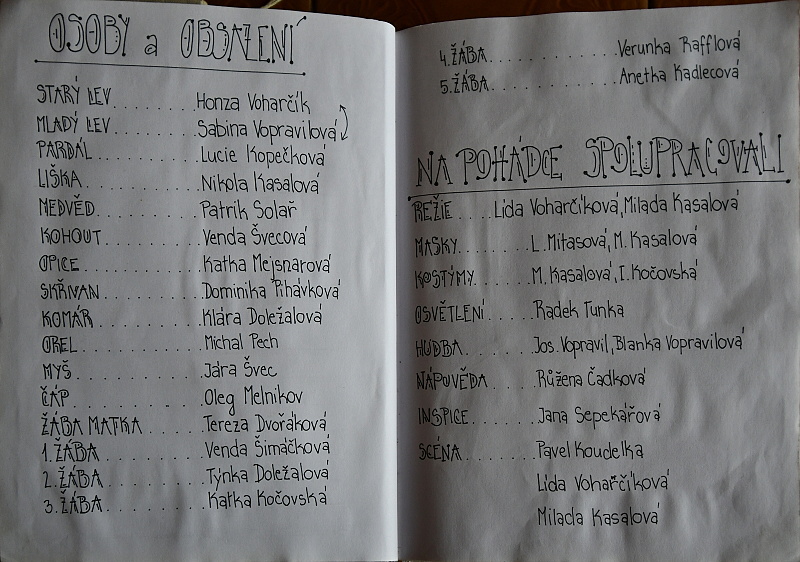 OSOBY a OBSAZENÍ
STARÝ LEV........Honza Voharčík
MLADÝ LEV........Sabina Vopravilová
PARDÁL..........Lucie Kopečková
LIŠKA...........Nikola Kasalová
MEDVĚD..........Patrik Solař
KOHOUT..........Venda Švecová
OPICE...........Katka Mejsnarová
SKŘIVAN.........Dominika Pihávková
KOMÁR...........Klára Doležalová
OREL............Michal Pech
MYŠ.............Jára Švec
ČÁP.............Oleg Melnikov
ŽÁBA MATKA......Tereza Dvořáková
1.ŽÁBA..........Venda Šimáčková
2.ŽÁBA..........Týnka Doležalová
3.ŽÁBA..........Katka Kočovská
4.ŽÁBA..........Verunka Rafflová
5.ŽÁBA..........Anetka Kadlecová
NA POHÁDCE SPOLUPRACOVALI
REŽIE....Lída Voharčíková, Milada Kasalová
MASKY.......L. Mitasová, M. Kasalová
KOSTÝMY......M. Kasalová, I. Kočovská
OSVĚTLENÍ.....Radek Tunka
HUDBA.......Jos. Vopravil, Blanka Vopravilová
NÁPOVĚDA.....Růžena Čadková
INSPICE......Jana Sepekářová
SCÉNA.......Pavel Koudelka
Lída Voharčíková
Milada Kasalová